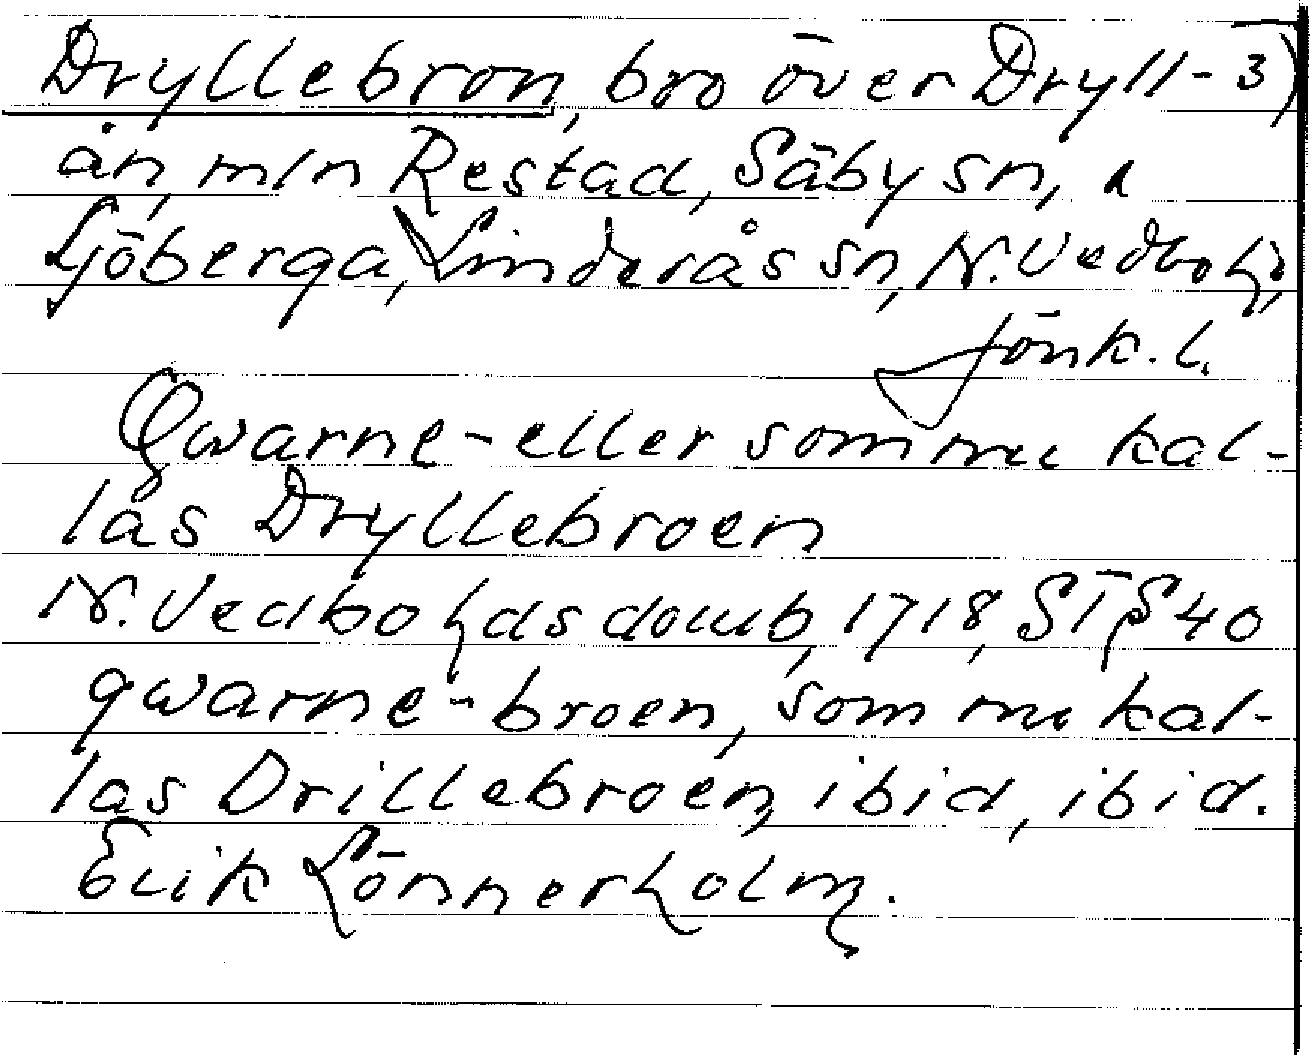 Dryllebron, bro över Dryll- 3)
ån, mln Restad, Säby sn, o
Ljöberga, Linderås sn, N. Vedbo hd,
Jönk. l.
Qwarne- eller som nu kal-
las Dryllebroen
N. Vedbo hds domb, 1718, S 40
qwarne-broen, som nu kal-
las Drillebroen, ibid, ibid.
Erik Lönnerholm.